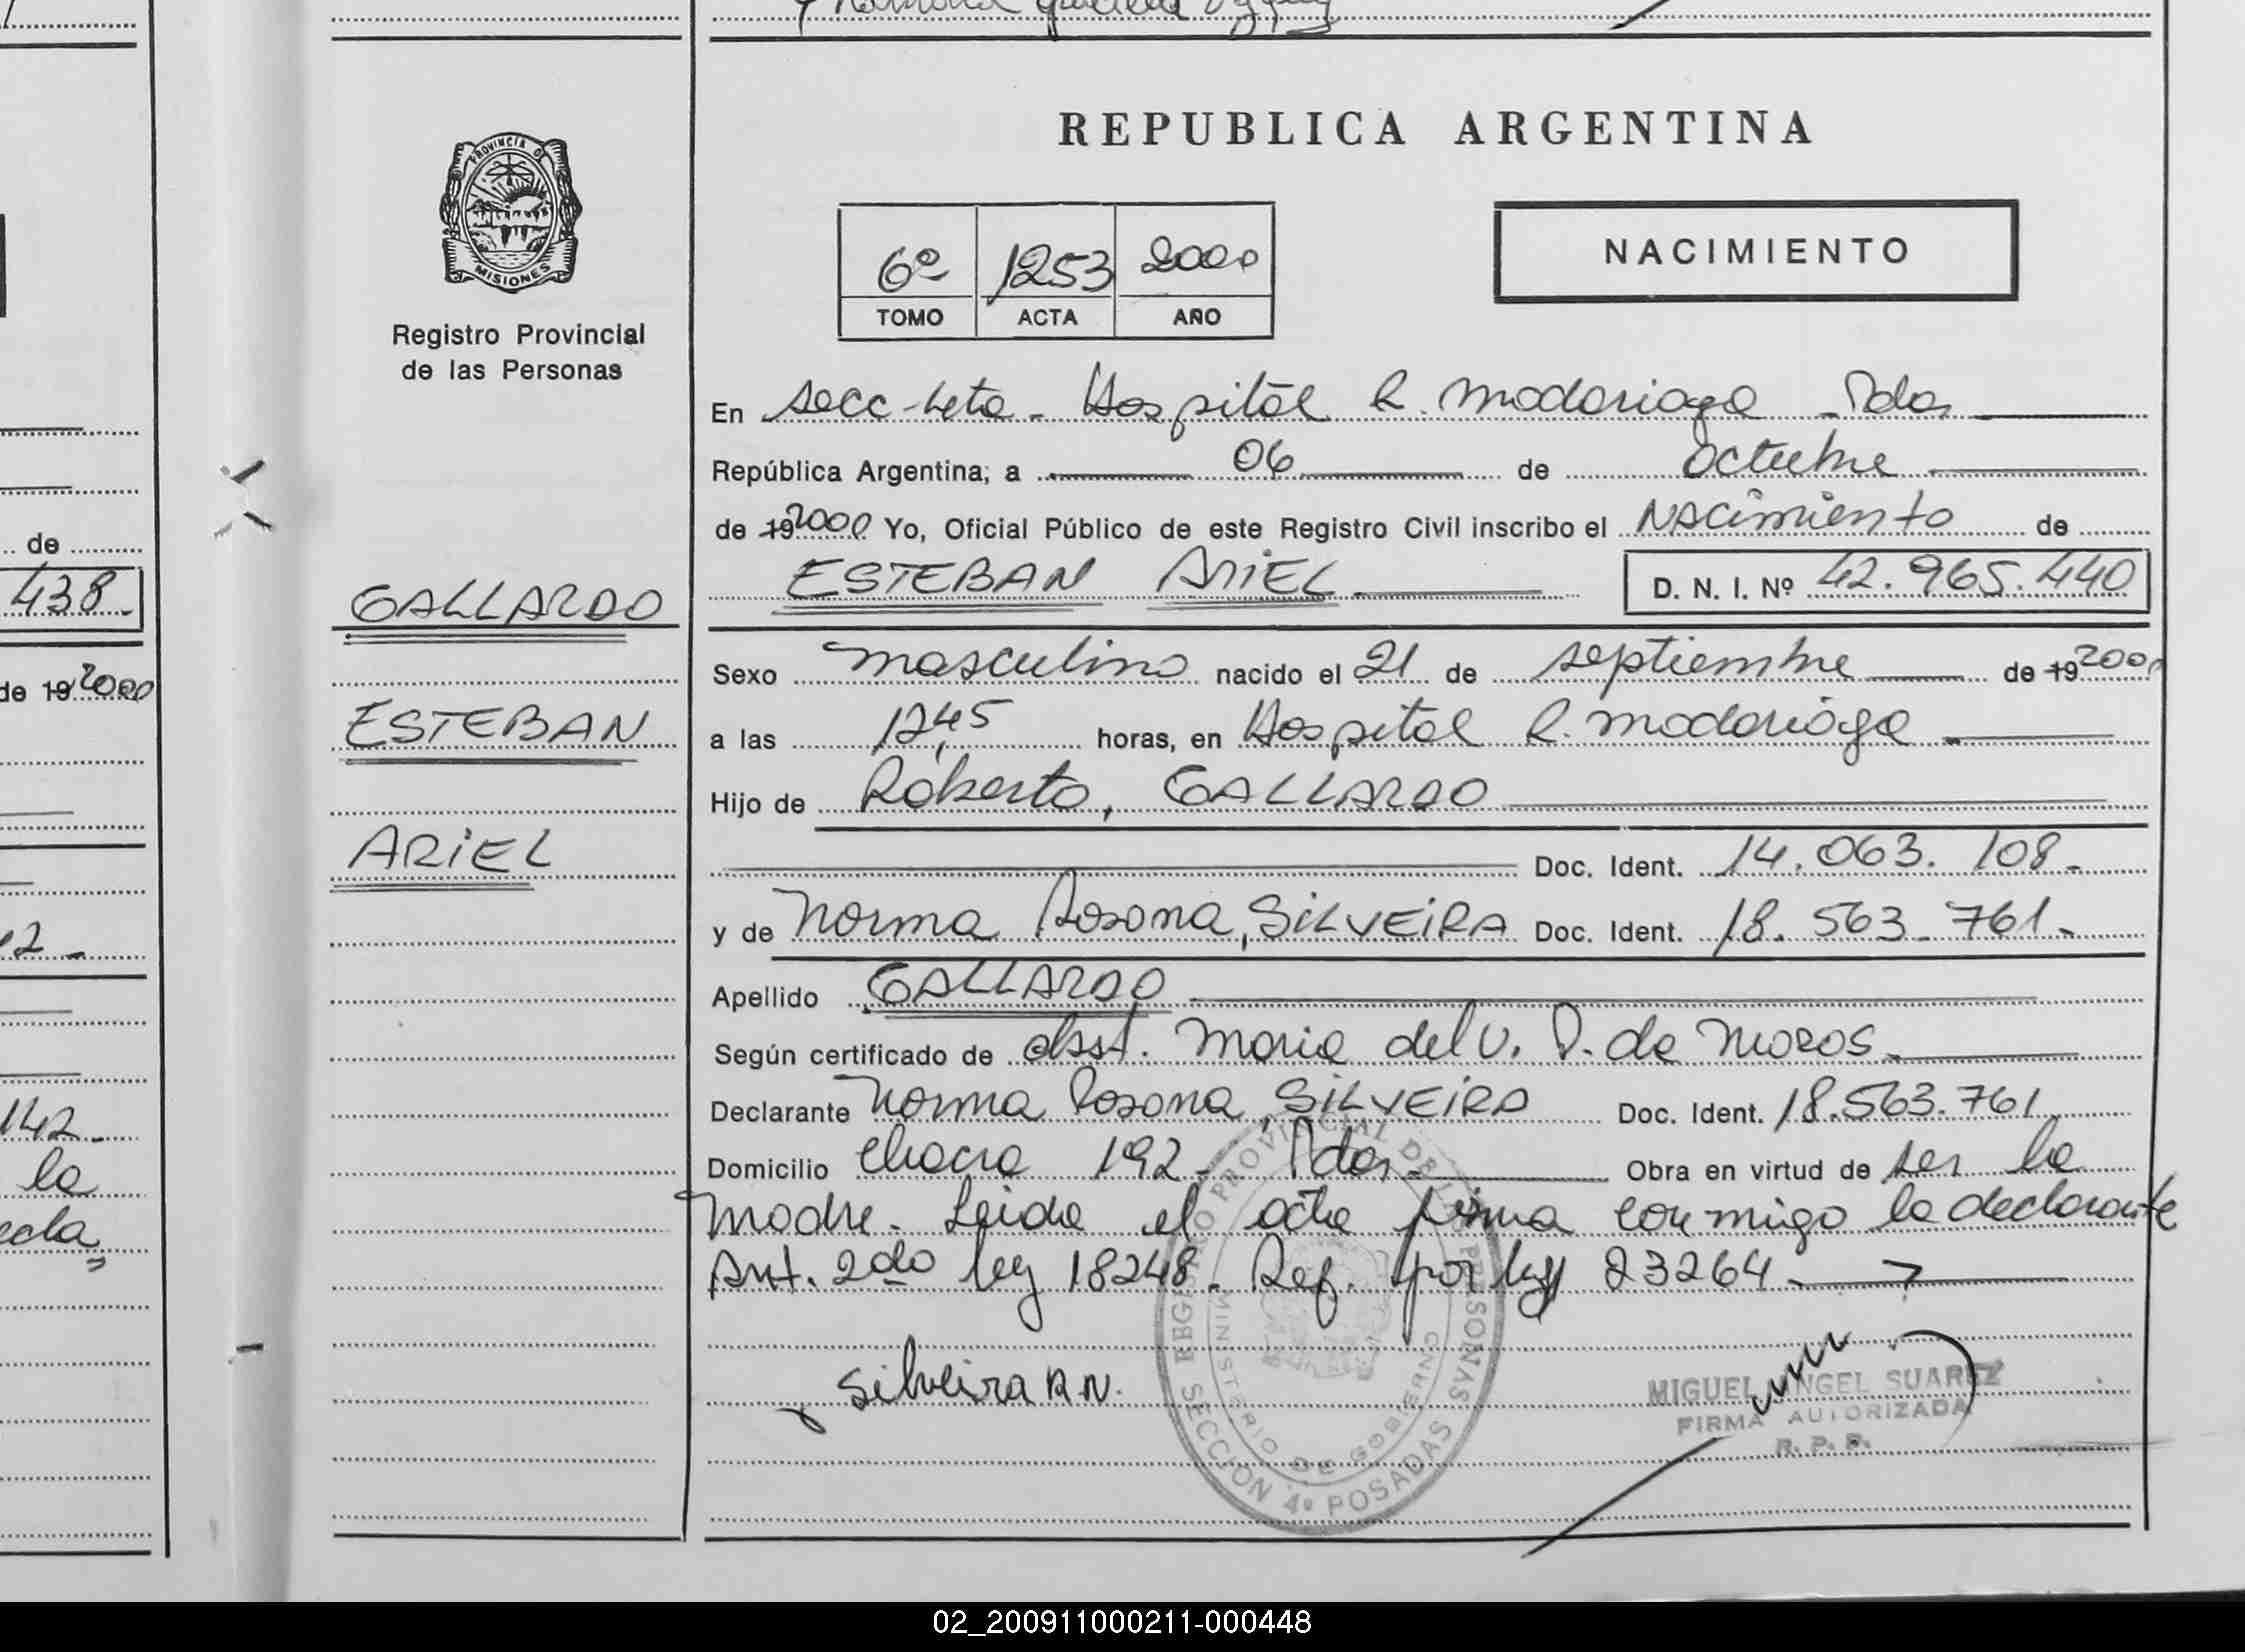 REPUBLICA ARGENTINA
PROVINCIA DE
MISIONES
Registro Provincial
de las Personas
6º 1253 2000
TOMO ACTA AÑO
NACIMIENTO
En secc-4ta- Hospital R. Madariaga - Pdas
República Argentina; a 06 de octubre
de 19 2000 Yo, Oficial Público de este Registro Civil inscribo el Nacimiento de
ESTEBAN ARIEL D. N. I. Nº 42.965.440
GALLARDO
ESTEBAN
ARIEL
Sexo masculino nacido el 21 de septiembre de 19 2000
a las 12,45 horas, en Hospital R. Madariaga
Hijo de Roberto, GALLARDO
Doc. Ident. 14.063.108.-
y de Norma Rosana, SILVEIRA Doc. Ident. 18.563.761.-
Apellido GALLARDO
Según certificado de obst. Maria del V. D. de Moros
Declarante Norma Rosana, SILVEIRA Doc. Ident. 18.563.761
Domicilio Chacra 192 - Pdas - Obra en virtud de ser la
Madre. Leida el acta firma conmigo la declarante
Art. 2do ley 18248. Ref. por ley 23264.-
Silveira R.N.
REGISTRO PROVINCIAL DE LAS PERSONAS
MINISTERIO DE GOBIERNO
SECCION 4º POSADAS
MIGUEL ANGEL SUAREZ
FIRMA AUTORIZADA
R. P. P.
de
438.-
de 19 2000
142.-
la
02_200911000211-000448